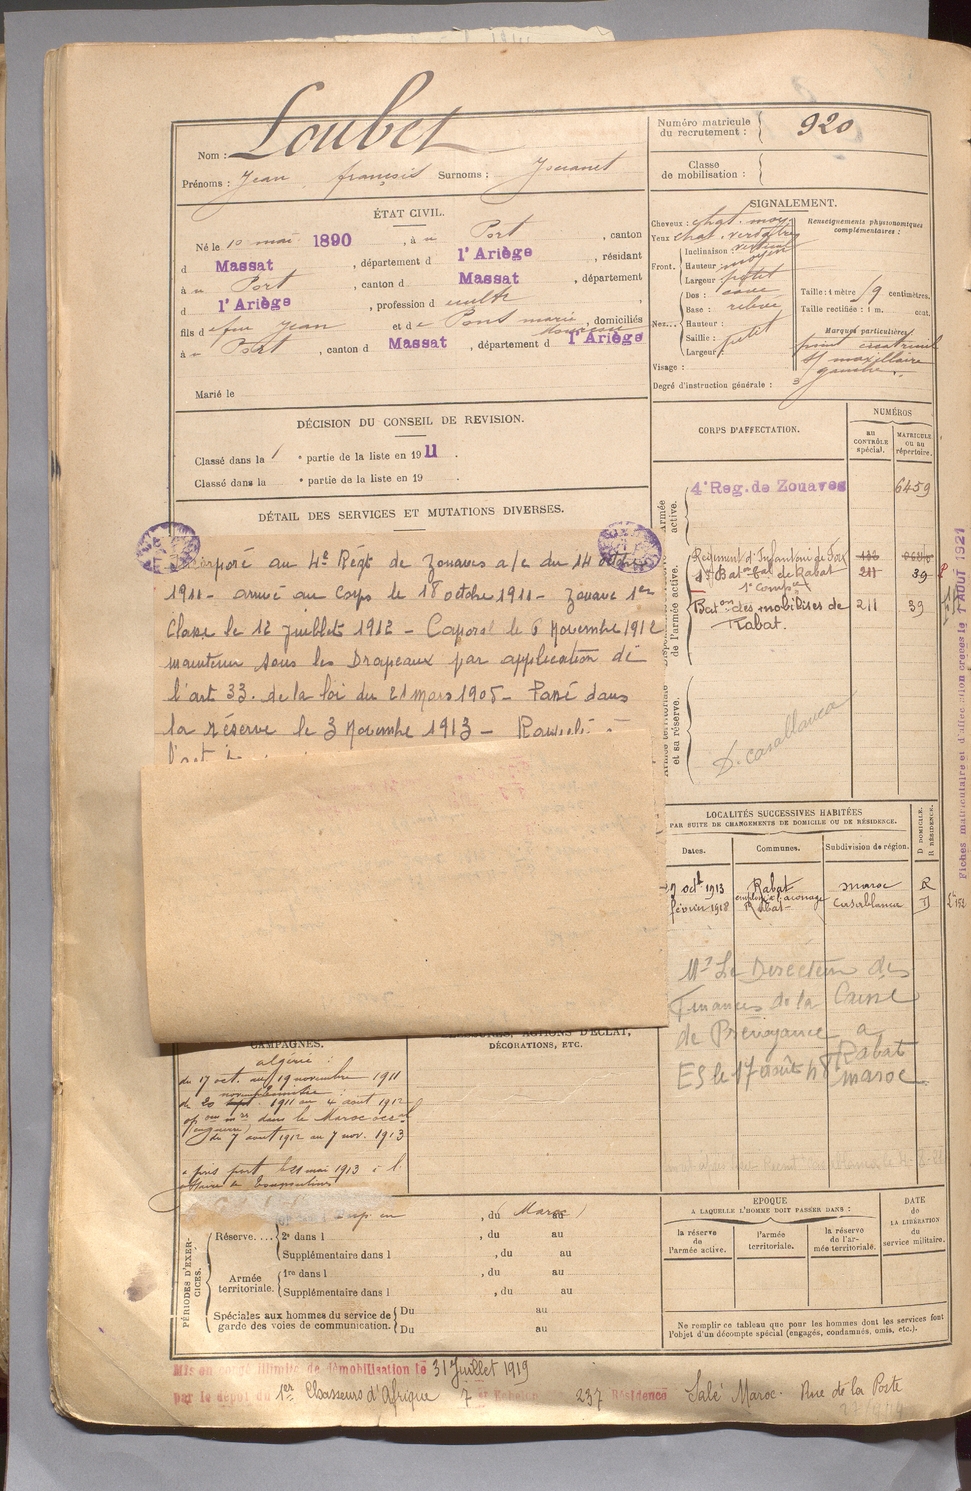 Loubet
Nom :
Prénoms : Jean françois Surnoms : Jouanet
Numéro matricule
du recrutement : 920
Classe
de mobilisation :
ÉTAT CIVIL.
Né le 10 mai 1890, à Port, canton
d Massat, département d l'Ariège, résidant
à Port, canton d Massat, département
d l'Ariège, profession d cultr,
fils d feu Jean et d Pont marie, domiciliés
à Port, canton d Massat, département d l'Ariège
Marié le
SIGNALEMENT.
Cheveux : chat. moy.
Yeux chat. verdâtres
Front. Inclinaison : vertical
Hauteur : moyen
Largeur : petit
Nez... Dos : cave
Base : relevé
Hauteur :
Saillie : petit
Largeur :
Visage :
Degré d'instruction générale : 3
Renseignements physionomiques
complémentaires :
Taille : 1 mètre 79 centimètres.
Taille rectifiée : 1 m. cent.
Marques particulières
point cicatriciel
s/ maxillaire
gauche.
DÉCISION DU CONSEIL DE REVISION.
Classé dans la 1 e partie de la liste en 1911.
Classé dans la e partie de la liste en 19 .
CORPS D'AFFECTATION.
NUMÉROS
au
CONTRÔLE
spécial.
MATRICULE
OU AU
répertoire.
4e Reg. de Zouaves 6459
Régiment d'Infanterie de Foix
Bat. de Rabat 211 39
1e Compie
Baton des mobilisés de 211 39
Rabat.
D. Casablanca
DÉTAIL DES SERVICES ET MUTATIONS DIVERSES.
au 4e Régt de Zouaves a/c du 14 octobre
1911 - arrivé au corps le 18 octobre 1911 - Zouave 1er
Classe le 12 Juillet 1912 - Caporal le 6 Novembre 1912
maintenu sous les Drapeaux par application de
l'art 33. de la loi du 21 Mars 1905 - Passé dans
la réserve le 3 Novembre 1913 -
LOCALITÉS SUCCESSIVES HABITÉES
PAR SUITE DE CHANGEMENTS DE DOMICILE OU DE RÉSIDENCE.
Dates. Communes. Subdivision de région.
D DOMICILE.
R RÉSIDENCE.
7 oct 1913 Rabat Maroc R
février 1918 Rabat Casablanca D
Mr Le Directeur des
Finances de la Caisse
de Prévoyance a
Rabat
ES le 17 août 48 maroc
Fiches matriculaire et d'affectation créées le 1 AOUT 1921
CAMPAGNES.
algérie :
du 17 oct. au 19 novembre 1911
de 20 1911 au 4 aout 1912
dans le Maroc
du 7 aout 1912 au 7 nov. 1913
a pris part le 21 mai 1913 à l'
affaire de
BLESSURES, ACTIONS D'ÉCLAT,
DÉCORATIONS, ETC.
PÉRIODES D'EXERCICES.
, du Maroc au
Réserve.... 2e dans l , du au
Supplémentaire dans l , du au
Armée
territoriale. 1re dans l , du au
Supplémentaire dans l , du au
Spéciales aux hommes du service de
garde des voies de communication. Du au
Du au
EPOQUE
A LAQUELLE L'HOMME DOIT PASSER DANS :
la réserve
de
l'armée active.
l'armée
territoriale.
la réserve
de l'ar-
mée territoriale.
DATE
de
LA LIBÉRATION
du
service militaire.
Ne remplir ce tableau que pour les hommes dont les services font
l'objet d'un décompte spécial (engagés, condamnés, omis, etc.).
Mis en congé illimité de démobilisation le 31 Juillet 1919
par le dépôt du 1er Chasseurs d'Afrique 7 e Echelon 237 Résidence Salé Maroc. Rue de la Poste